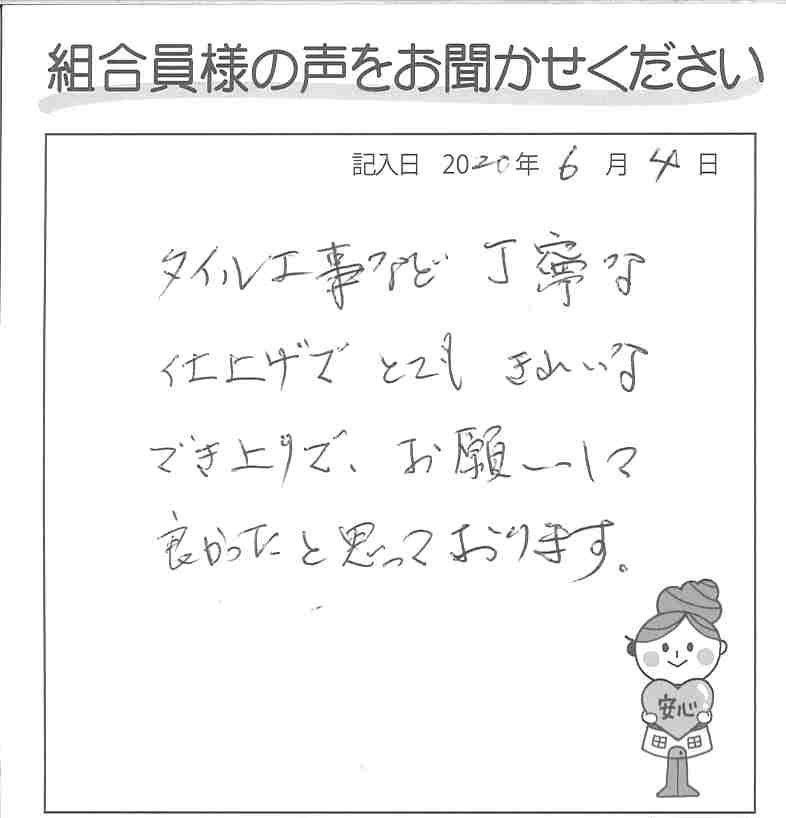 組合員様の声をお聞かせください
記入日 2020年 6月 4日
タイル工事など 丁寧な
仕上げで とても きれいな
でき上りで、お願いして
良かったと思っております。
安心